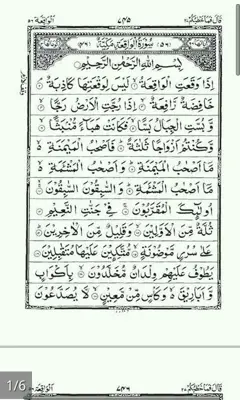 قال فما خطبكم ٢٧ ٧٤٥ الواقعة ٥٦
(٥٦) سُوْرَةُ الْوَاقِعَةِ مَكِّيَّةٌ (٤٦)
بِسْمِ اللّٰهِ الرَّحْمٰنِ الرَّحِيْمِ
اِذَا وَقَعَتِ الْوَاقِعَةُ ۝ لَيْسَ لِوَقْعَتِهَا كَاذِبَةٌ ۝
خَافِضَةٌ رَّافِعَةٌ ۝ اِذَا رُجَّتِ الْاَرْضُ رَجًّا ۝
وَّ بُسَّتِ الْجِبَالُ بَسًّا ۝ فَكَانَتْ هَبَآءً مُّنْۢبَثًّا ۝
وَّكُنْتُمْ اَزْوَاجًا ثَلٰثَةً ۝ فَاَصْحٰبُ الْمَيْمَنَةِ
مَاۤ اَصْحٰبُ الْمَيْمَنَةِ ۝ وَ اَصْحٰبُ الْمَشْئَمَةِ
مَاۤ اَصْحٰبُ الْمَشْئَمَةِ ۝ وَ السّٰبِقُوْنَ السّٰبِقُوْنَ ۝
اُولٰٓئِكَ الْمُقَرَّبُوْنَ ۝ فِيْ جَنّٰتِ النَّعِيْمِ ۝
ثُلَّةٌ مِّنَ الْاَوَّلِيْنَ ۝ وَ قَلِيْلٌ مِّنَ الْاٰخِرِيْنَ ۝
عَلٰى سُرُرٍ مَّوْضُوْنَةٍ ۝ مُّتَّكِـِٕيْنَ عَلَيْهَا مُتَقٰبِلِيْنَ ۝
يَطُوْفُ عَلَيْهِمْ وِلْدَانٌ مُّخَلَّدُوْنَ ۝ بِاَكْوَابٍ
وَّ اَبَارِيْقَ ۙ وَ كَاْسٍ مِّنْ مَّعِيْنٍ ۝ لَّا يُصَدَّعُوْنَ
1/6
قال فما خطبكم ٢٧ ٧٤٦ الواقعة ٥٦